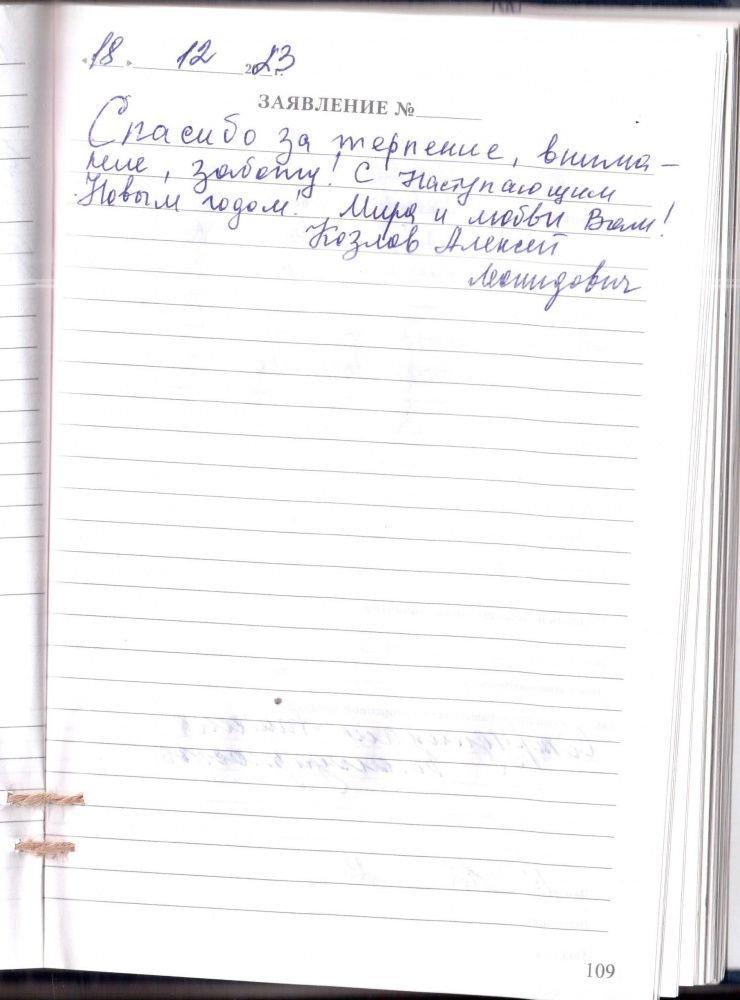 «18» 12 2023 г.
ЗАЯВЛЕНИЕ №
Спасибо за терпение, внима-
ние, заботу! С Наступающим
Новым годом! Мира и любви Вам!
Козлов Алексей
Леонидович
109